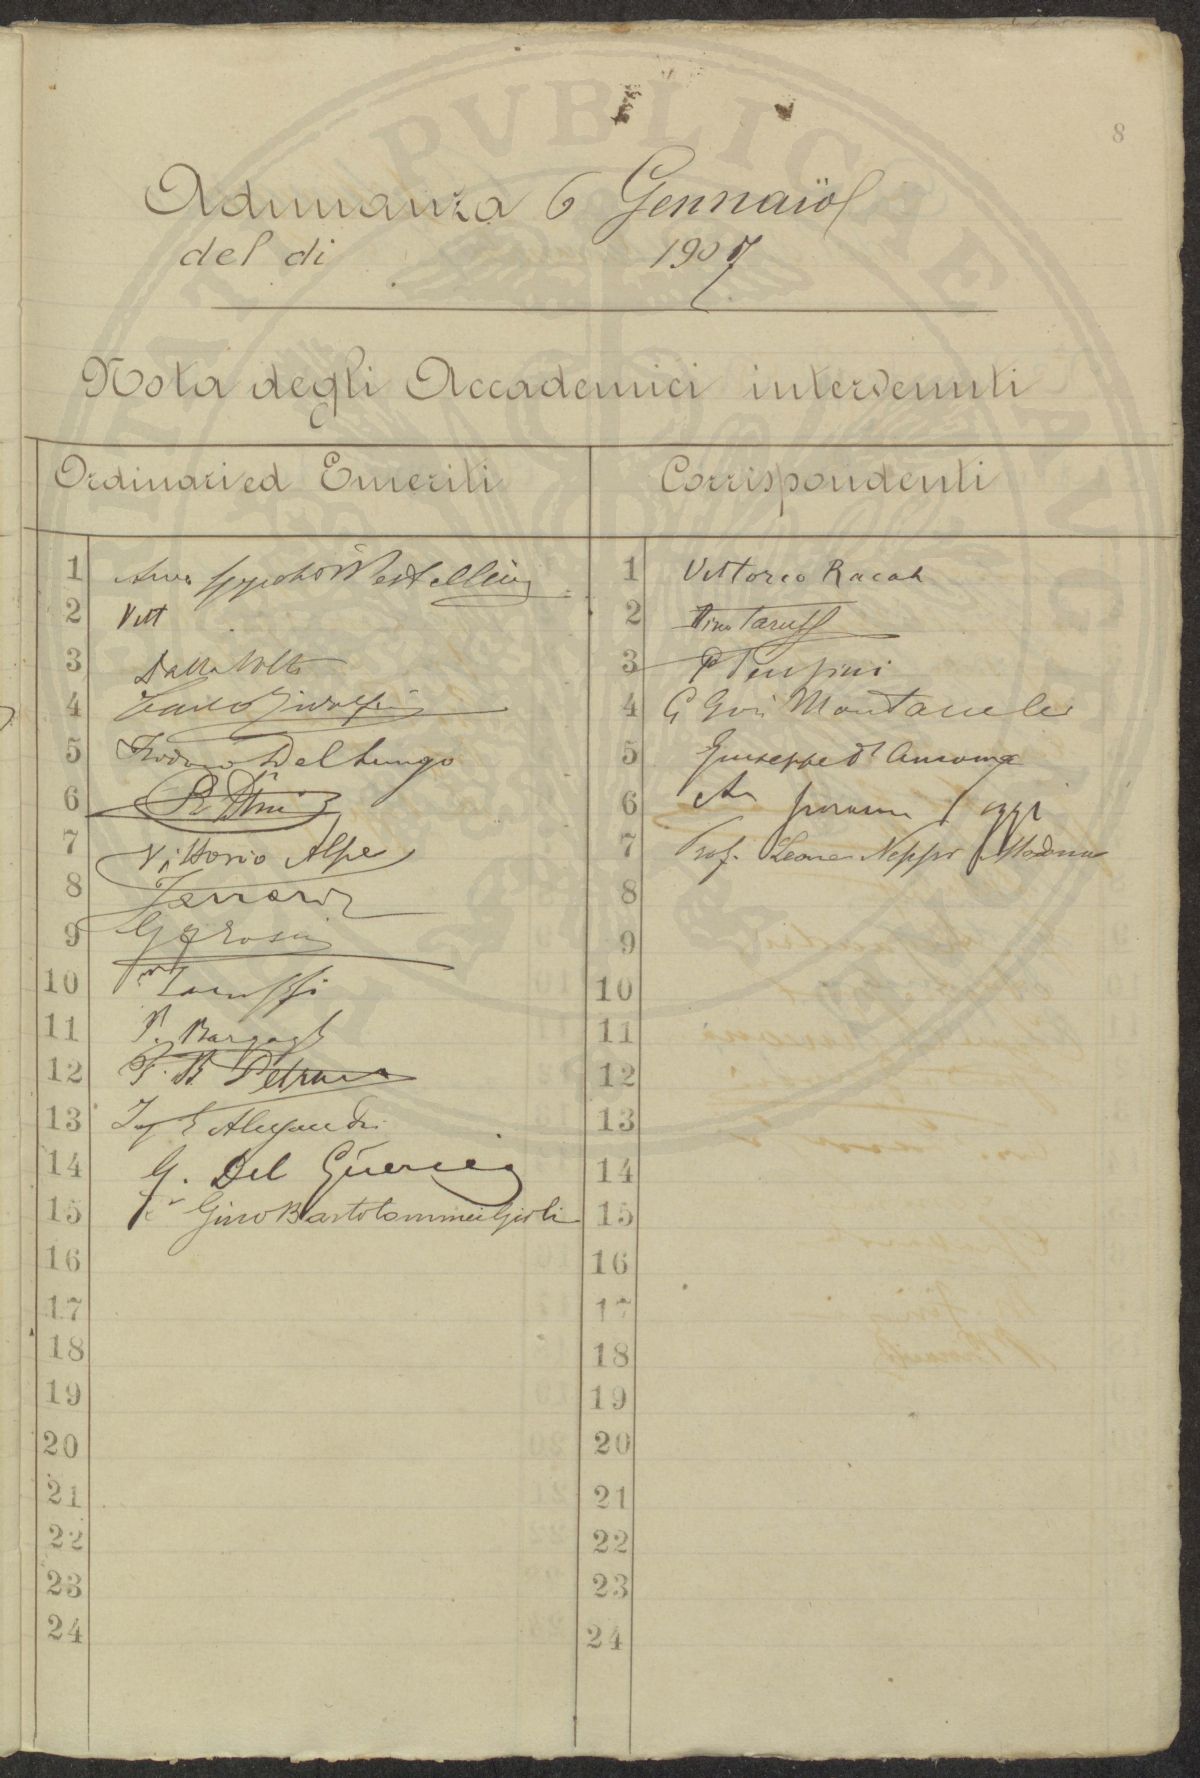 8
Adunanza 6 Gennaio
del di 1907
Nota degli Accademici intervenuti
Ordinari ed Emeriti
Corrispondenti
1 Avv. Ippolito Pestellini
2 Vitt
3 Dalla Volta
4 Carlo Ridolfi
5 Isidoro Del Lungo
6
7 Vittorio Alpe
8
9
10
11 P. Bargagli
12 F. B. Petrucci
13 Ing. E Alessandri
14 G. Del Guercio
15 Gino Bartolommei Gioli
16
17
18
19
20
21
22
23
24
1 Vittorio Racah
2 Dino Taruffi
3 P
4 G Gori Montanelli
5 Giuseppe d'Ancona
6
7 Prof. Leone Neppi Modona
8
9
10
11
12
13
14
15
16
17
18
19
20
21
22
23
24